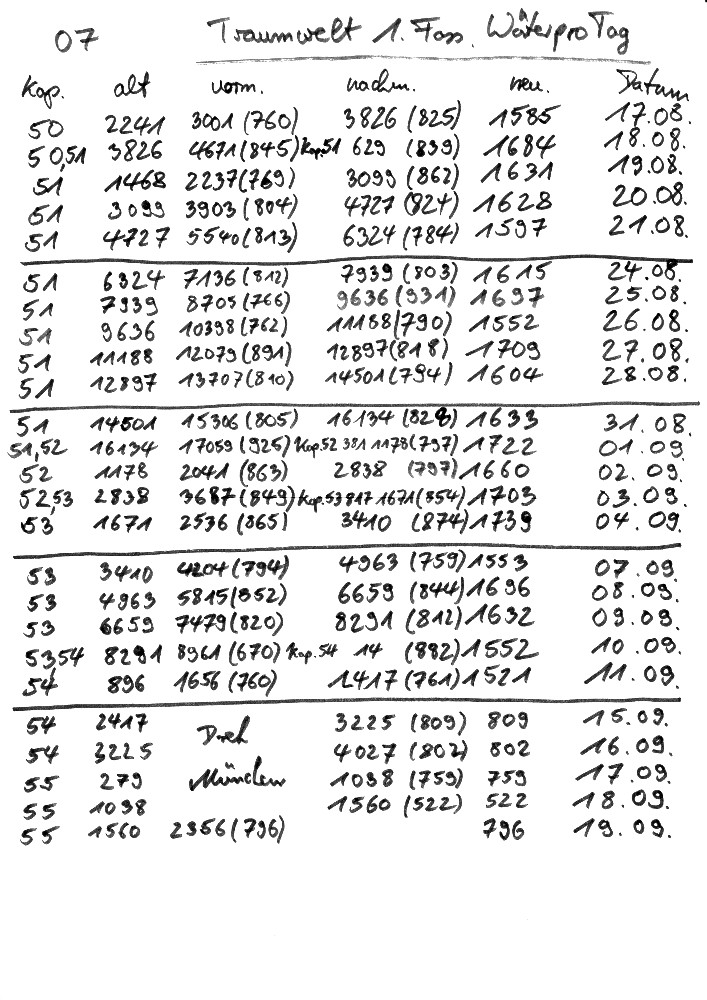 07 Traumwelt 1. Fass. Wörter pro Tag
Kap. alt vorm. nachm. neu. Datum
50 2241 3001 (760) 3826 (825) 1585 17.08.
50,51 3826 4671 (845) Kap. 51 629 (839) 1684 18.08.
51 1468 2237 (769) 3099 (862) 1631 19.08.
51 3099 3903 (804) 4727 (824) 1628 20.08.
51 4727 5540 (813) 6324 (784) 1597 21.08.
51 6324 7136 (812) 7939 (803) 1615 24.08.
51 7939 8705 (766) 9636 (931) 1697 25.08.
51 9636 10398 (762) 11188 (790) 1552 26.08.
51 11188 12079 (891) 12897 (818) 1709 27.08.
51 12897 13707 (810) 14501 (794) 1604 28.08.
51 14501 15306 (805) 16134 (828) 1633 31.08.
51,52 16134 17059 (925) Kap. 52 381 1178 (797) 1722 01.09.
52 1178 2041 (863) 2838 (797) 1660 02.09.
52,53 2838 3687 (849) Kap. 53 817 1671 (854) 1703 03.09.
53 1671 2536 (865) 3410 (874) 1739 04.09.
53 3410 4204 (794) 4963 (759) 1553 07.09.
53 4963 5815 (852) 6659 (844) 1696 08.09.
53 6659 7479 (820) 8291 (812) 1632 09.09.
53,54 8291 8961 (670) Kap. 54 14 (882) 1552 10.09.
54 896 1656 (760) 2417 (761) 1521 11.09.
54 2417 Dreh 3225 (809) 809 15.09.
54 3225 4027 (802) 802 16.09.
55 279 München 1038 (759) 759 17.09.
55 1038 1560 (522) 522 18.09.
55 1560 2356 (796) 796 19.09.